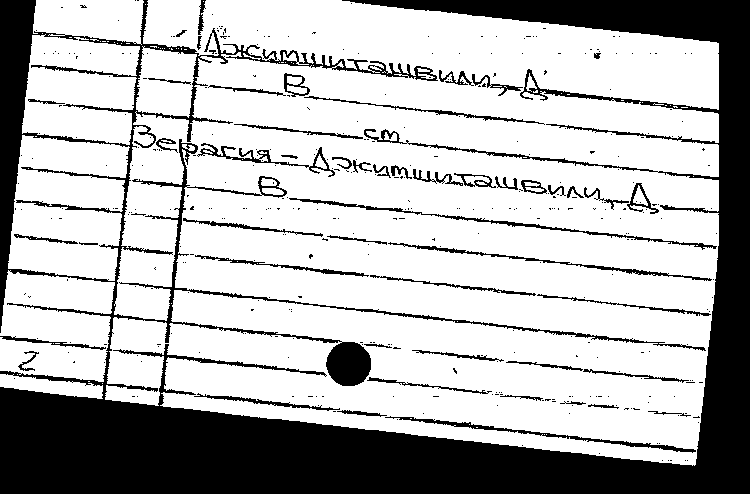 Джимшиташвили, Д.
В
см.
Зерагия - Джимшиташвили, Д.
В
2